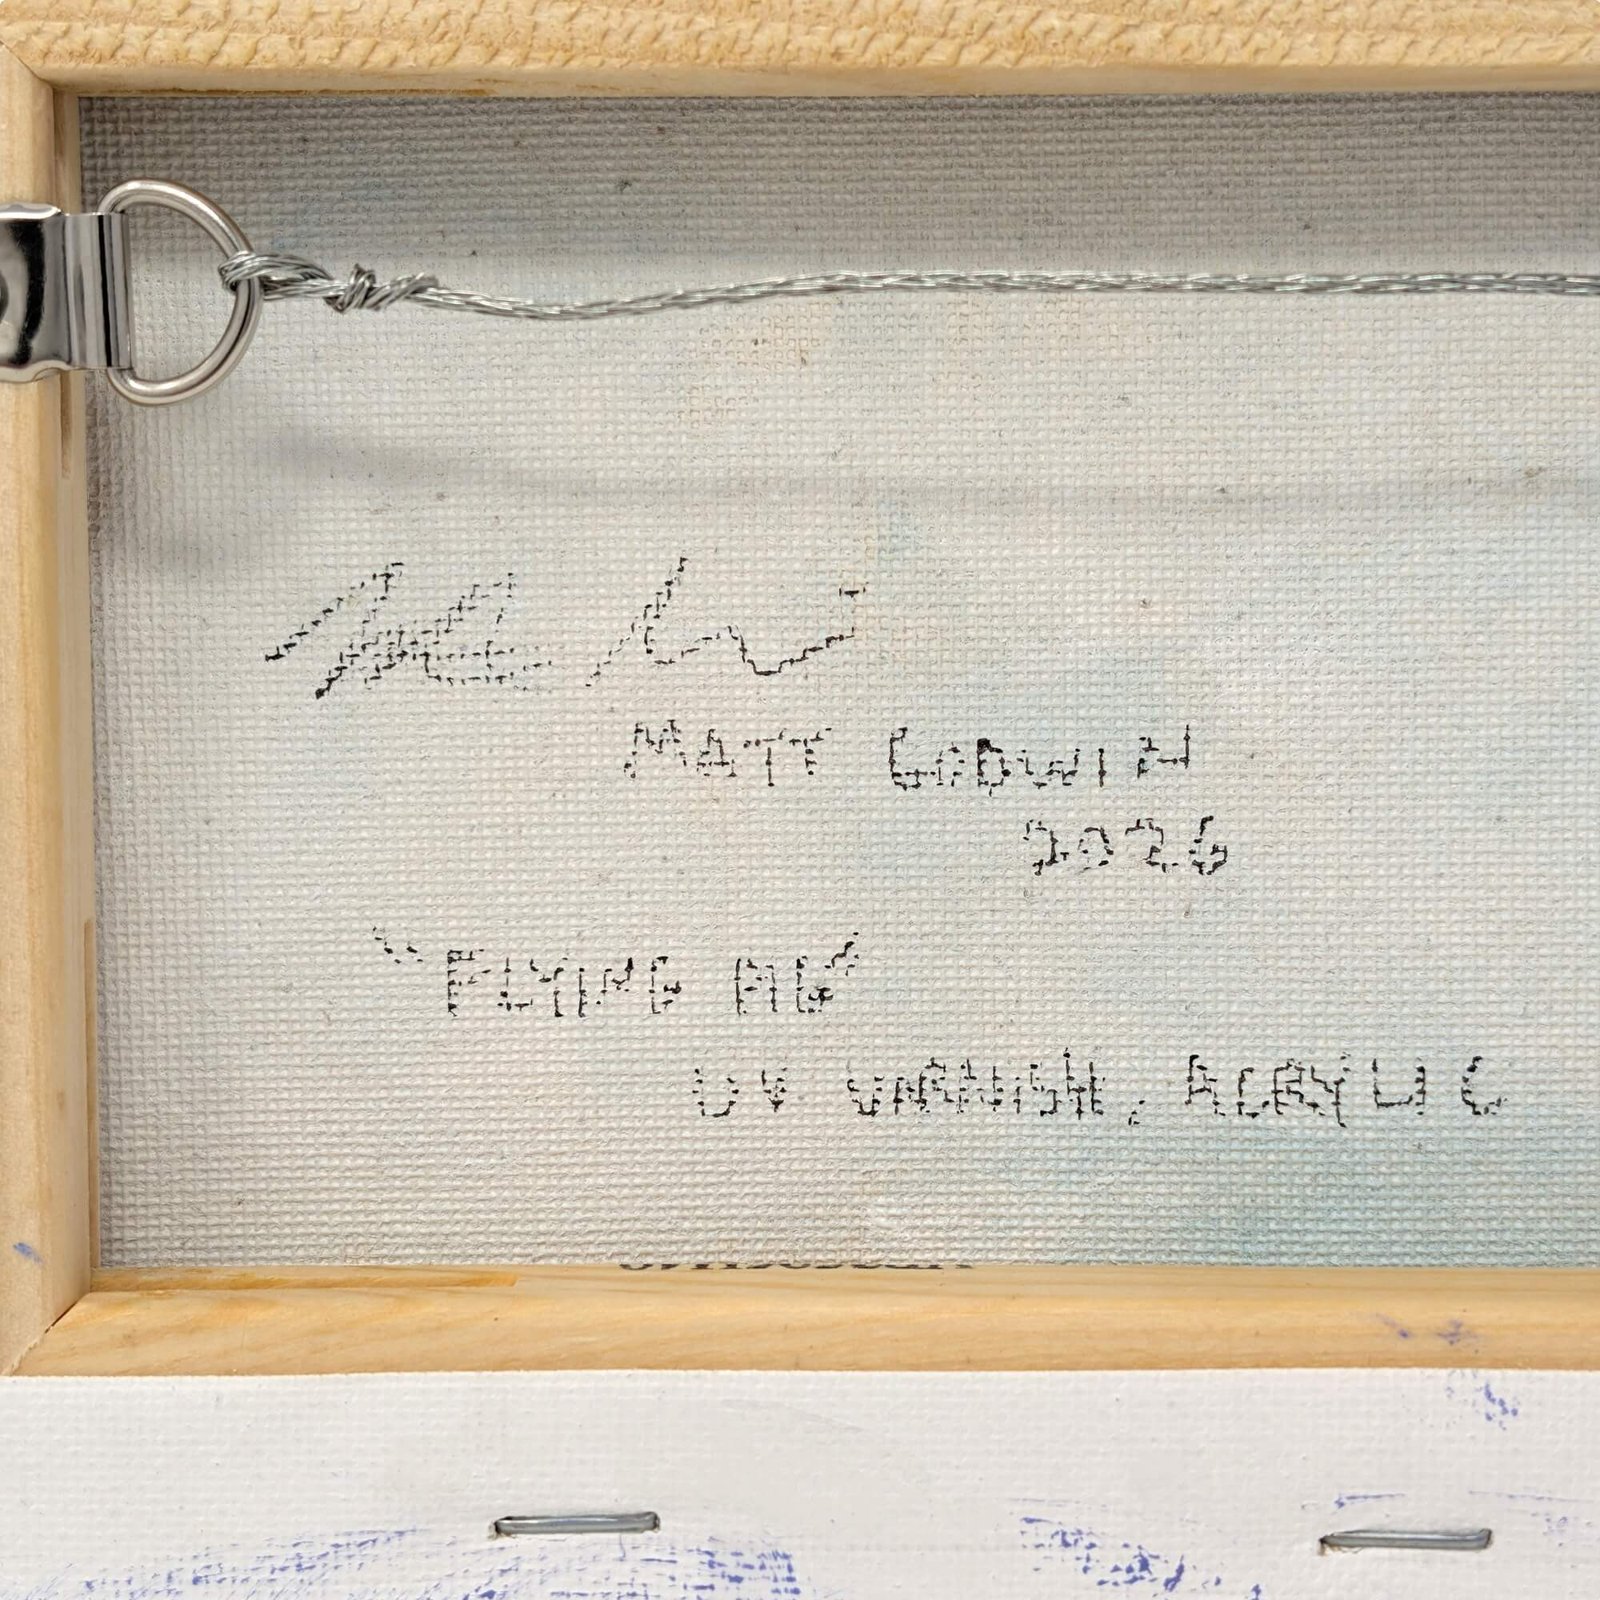 MATT GODWIN
2026
"FLYING PIG"
UV VARNISH, ACRYLIC